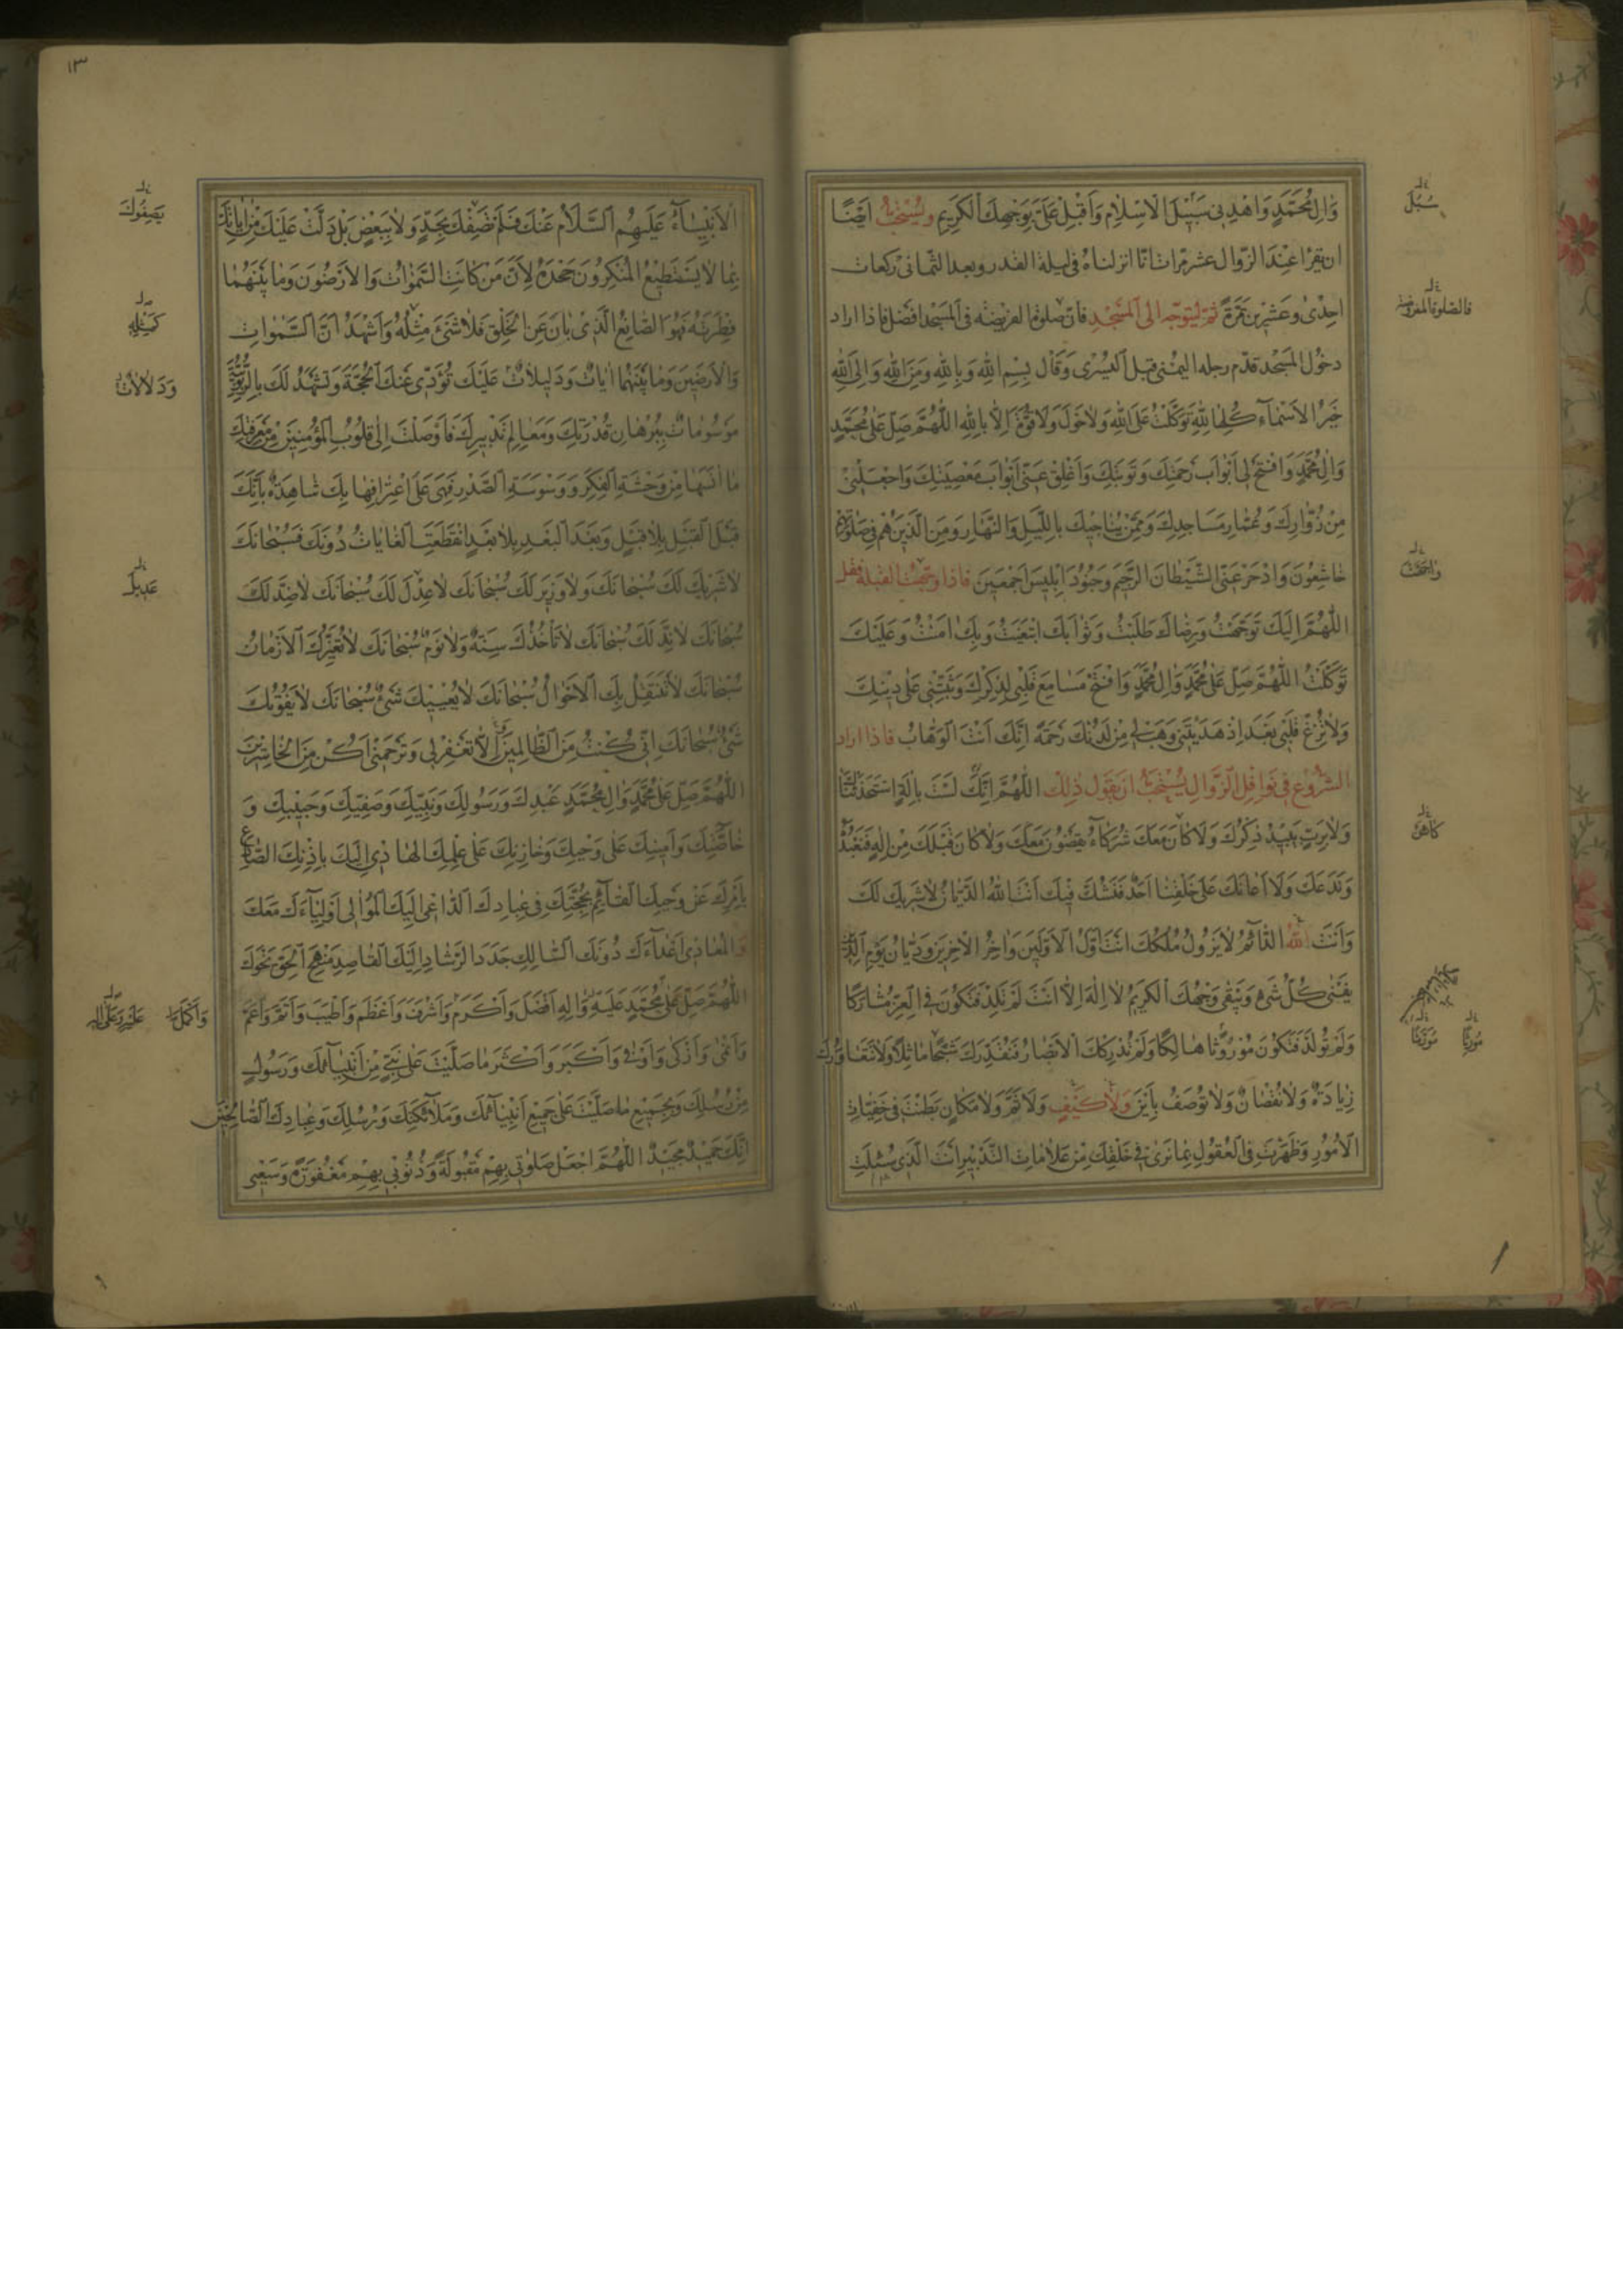 وَالِ مُحَمَّدٍ وَاهْدِنِي سَبِيلَ الْاِسْلَامِ وَاَقْبِلْ عَلَيَّ بِوَجْهِكَ الْكَرِيمِ وَيُسْتَحَبُّ اَيْضًا
ان يقرأ عِنْدَ الزَّوال عشر مرّات انّا انزلناهُ في ليلة القدر وبعد الثماني ركعات
احِدْى وَعشْرِين مَرّةً ثمّ ليتوجّه الى المَسْجِدِ فانّ صلوة الفريضه في المَسْجد افضل فاذا اراد
دخُول المَسْجد قدّم رجله اليمْنى قبل اليُسْرى وَقال بِسْمِ اللهِ وَبِاللهِ وَمِنَ اللهِ وَاِلَى اللهِ
خَيْرُ الاَسْمَآءِ كُلِّها للهِ تَوَكَّلْتُ عَلَى اللهِ وَلا حَوْلَ وَلا قُوَّةَ اِلّا بِاللهِ اللّهُمَّ صَلِّ عَلى مُحَمَّدٍ
وَالِ مُحَمَّدٍ وَافْتَحْ لِي اَبْوابَ رَحْمَتِكَ وَتَوْبَتِكَ وَاَغْلِقْ عَنّي اَبْوابَ مَعْصِيَتِكَ وَاجْعَلْنِي
مِنْ زُوّارِكَ وَعُمّارِ مَسَاجِدِكَ وَمِمَّنْ يُنَاجِيكَ بِاللَّيْلِ وَالنَّهَارِ وَمِنَ الَّذِينَ هُمْ فِي صَلٰوتِهِمْ
خَاشِعُونَ وَادْحَرْ عَنِّي الشَّيْطانَ الرَّجِيمَ وَجُنُودَ اِبْلِيسَ اَجْمَعِينَ فاذا وجّهت القبلة فقل
اللّهُمَّ اِلَيْكَ تَوَجَّهْتُ وَرِضاكَ طَلَبْتُ وَثَوابَكَ ابْتَغَيْتُ وَبِكَ اٰمَنْتُ وَعَلَيْكَ
تَوَكَّلْتُ اللّهُمَّ صَلِّ عَلى مُحَمَّدٍ وَالِ مُحَمَّدٍ وَافْتَحْ مَسَامِعَ قَلْبِي لِذِكْرِكَ وَثَبِّتْنِي عَلى دِينِكَ
وَلا تُزِغْ قَلْبِي بَعْدَ اِذْ هَدَيْتَنِي وَهَبْ لِي مِنْ لَدُنْكَ رَحْمَةً اِنَّكَ اَنْتَ الْوَهّابُ فاذا اراد
الشروع في نوافل الزَّوالِ يُسْتَحَبُّ ان يقول ذلك اللّهُمَّ اِنَّكَ لَسْتَ بِاِلهٍ اسْتَحْدَثْنَاكَ
وَلا بِرَبٍّ يَبِيدُ ذِكْرُكَ وَلا كانَ مَعَكَ شُرَكآءُ يَقْضُونَ مَعَكَ وَلا كانَ قَبْلَكَ مِنْ اِلٰهٍ فَنَعْبُدَهُ
وَنَدَعَكَ وَلا اَعانَكَ عَلى خَلْقِنا اَحَدٌ فَنَشُكَّ فِيكَ اَنْتَ اللهُ الدَّيّانُ لا شَرِيكَ لَكَ
وَاَنْتَ اللهُ الدّآئِمُ لا يَزُولُ مُلْكُكَ اَنْتَ اَوَّلُ الاَوَّلِينَ وَاٰخِرُ الاٰخِرِينَ وَدَيّانُ يَوْمِ الدِّينِ
يَفْنى كُلُّ شَيْءٍ وَيَبْقى وَجْهُكَ الْكَرِيمُ لا اِلهَ اِلّا اَنْتَ لَمْ تَلِدْ فَتَكُونَ فِي الْعِزِّ مُشَارَكًا
وَلَمْ تُولَدْ فَتَكُونَ مَوْرُوثًا هالِكًا وَلَمْ تُدْرِكْكَ الاَبْصارُ فَتُقَدِّرَكَ شَبَحًا ماثِلًا وَلا تَتَعاوَرُكَ
زِيادَةٌ وَلا نُقْصانٌ وَلا تُوصَفُ بِاَيْنَ وَلا كَيْفَ وَلا ثَمَّ وَلا مَكانٍ بَطَنْتَ فِي خَفِيّاتِ
الاُمُورِ وَظَهَرْتَ فِي الْعُقُولِ بِما نَرى فِي خَلْقِكَ مِنْ عَلاماتِ التَّدْبِيرِ اَنْتَ الَّذِي سُئِلَتِ
سُبُلَ
فالصّلوة المفروضة
كاهن
مورثا
موروثا
١٣
الاَنْبِيآءُ عَلَيْهِمُ السَّلامُ عَنْكَ فَلَمْ تَصِفْكَ بِحَدٍّ وَلا بِبَعْضٍ بَلْ دَلَّتْ عَلَيْكَ مِنْ اٰيَاتِكَ
بِما لا يَسْتَطِيعُ الْمُنْكِرُونَ جَحْدَهُ لِاَنَّ مَنْ كانَتِ السَّمٰوَاتُ وَالاَرَضُونَ وَما بَيْنَهُما
فِطْرَتَهُ فَهُوَ الصّانِعُ الَّذِي بانَ عَنِ الْخَلْقِ فَلا شَيْءَ مِثْلُهُ وَاَشْهَدُ اَنَّ السَّمٰوَاتِ
وَالْاَرَضِينَ وَما بَيْنَهُما اٰياتٌ وَدَلِيلاتٌ عَلَيْكَ تُؤَدِّي عَنْكَ الْحُجَّةَ وَتَشْهَدُ لَكَ بِالرُّبُوبِيَّةِ
مَوْسُوماتٌ بِبُرْهانِ قُدْرَتِكَ وَمَعالِمِ تَدْبِيرِكَ فَاَوْصَلْتَ اِلى قُلُوبِ الْمُؤْمِنِينَ مِنْ مَعْرِفَتِكَ
ما اٰنَسَها مِنْ وَحْشَةِ الْفِكْرِ وَوَسْوَسَةِ الصَّدْرِ فَهِيَ عَلَى اعْتِرافِها بِكَ شاهِدَةٌ بِاَنَّكَ
قَبْلَ الْقَبْلِ بِلا قَبْلٍ وَبَعْدَ الْبَعْدِ بِلا بَعْدٍ انْقَطَعَتِ الْغاياتُ دُونَكَ فَسُبْحانَكَ
لا شَرِيكَ لَكَ سُبْحانَكَ وَلا وَزِيرَ لَكَ سُبْحانَكَ لا عِدْلَ لَكَ سُبْحانَكَ لا ضِدَّ لَكَ
سُبْحانَكَ لا نِدَّ لَكَ سُبْحانَكَ لا تَأْخُذُكَ سِنَةٌ وَلا نَوْمٌ سُبْحانَكَ لا تُغَيِّرُكَ الاَزْمانُ
سُبْحانَكَ لا تَنْتَقِلُ بِكَ الاَحْوالُ سُبْحانَكَ لا يُعْيِيكَ شَيْءٌ سُبْحانَكَ لا يَفُوتُكَ
شَيْءٌ سُبْحانَكَ اِنّي كُنْتُ مِنَ الظّالِمِينَ اِلّا تَغْفِرْ لِي وَتَرْحَمْنِي اَكُنْ مِنَ الْخاسِرِينَ
اللّهُمَّ صَلِّ عَلى مُحَمَّدٍ وَالِ مُحَمَّدٍ عَبْدِكَ وَرَسُولِكَ وَنَبِيِّكَ وَصَفِيِّكَ وَحَبِيبِكَ وَ
خاصَّتِكَ وَاَمِينِكَ عَلى وَحْيِكَ وَخازِنِكَ عَلى عِلْمِكَ الْهادِي اِلَيْكَ بِاِذْنِكَ الصّادِعِ
بِاَمْرِكَ عَنْ وَحْيِكَ الْقآئِمِ بِحُجَّتِكَ فِي عِبادِكَ الدّاعِي اِلَيْكَ الْمُوالِي اَوْلِيآءَكَ مَعَكَ
وَالْمُعادِي اَعْدآءَكَ دُونَكَ السّالِكِ جَدَدَ الرَّشادِ اِلَيْكَ الْقاصِدِ مَنْهَجَ الْحَقِّ نَحْوَكَ
اللّهُمَّ صَلِّ عَلى مُحَمَّدٍ عَلَيْهِ وَالِهِ اَفْضَلَ وَاَكْرَمَ وَاَشْرَفَ وَاَعْظَمَ وَاَطْيَبَ وَاَتَمَّ وَاَعَمَّ
وَاَنْمى وَاَزْكى وَاَوْفى وَاَكْبَرَ وَاَكْثَرَ ما صَلَّيْتَ عَلى نَبِيٍّ مِنْ اَنْبِيآئِكَ وَرَسُولٍ
مِنْ رُسُلِكَ وَبِجَمِيعِ ما صَلَّيْتَ عَلى جَمِيعِ اَنْبِيآئِكَ وَمَلآئِكَتِكَ وَرُسُلِكَ وَعِبادِكَ الصّالِحِينَ
اِنَّكَ حَمِيدٌ مَجِيدٌ اللّهُمَّ اجْعَلْ صَلَوتِي بِهِمْ مَقْبُولَةً وَذُنُوبِي بِهِمْ مَغْفُورَةً وَسَعْيِي
يَصِفُوكَ
كَمِثْلِهِ
وَدَلالاتٌ
عَدِيلَ
وَاَكْمَلَ